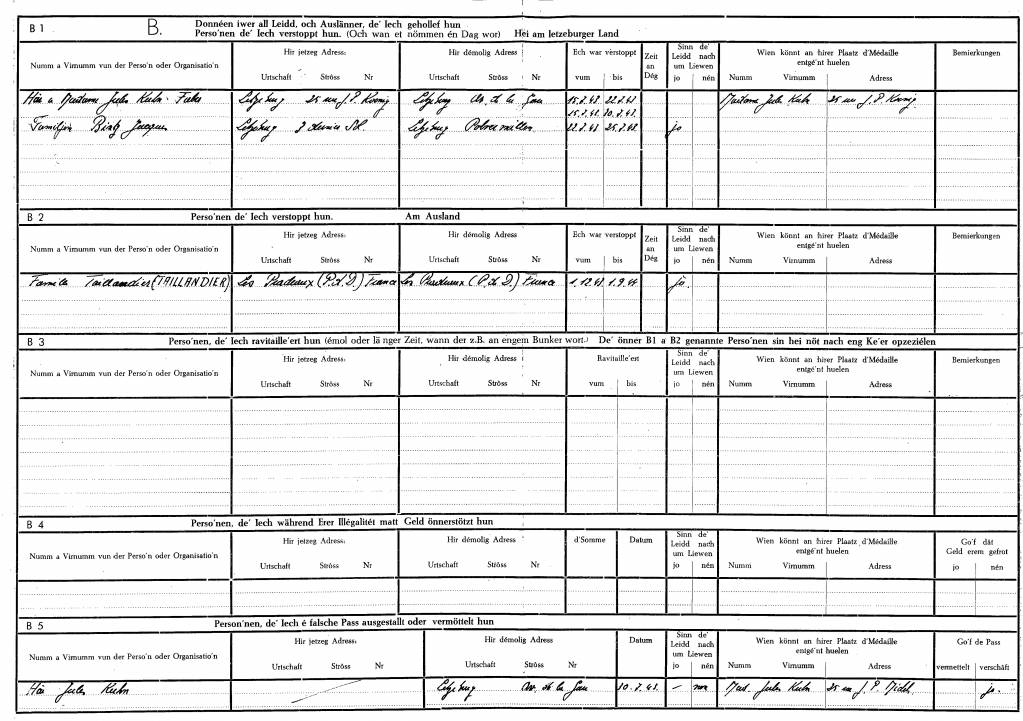 B 1 B. Donnéen iwer all Leidd, och Auslänner, de' Iech gehollef hun
Perso'nen de' Iech verstoppt hun. (Och wan et nömmen én Dag wor) Hei am letzeburger Land
Numm a Virnumm vun der Perso'n oder Organisatio'n Hir jetzeg Adress: Hir démolig Adress Ech war verstoppt Zeit an Dég Sinn de' Leidd nach um Liewen Wien könnt an hirer Plaatz d'Médaille entgé'nt huelen Bemierkungen
Urtschaft Ströss Nr Urtschaft Ströss Nr vum bis jo nén Numm Virnumm Adress
Här a Madame Jules Kuhn - Letzeburg 25 rue J. P. Letzeburg Av. de la Gare 15.7.43. 22.7.43. Madame Jules Kuhn 25 rue J. P.
Familjen Letzeburg 3 Letzeburg 22.7.43 25.7.43. jo
B 2 Perso'nen de' Iech verstoppt hun. Am Ausland
Numm a Virnumm vun der Perso'n oder Organisatio'n Hir jetzeg Adress: Hir démolig Adress Ech war verstoppt Zeit an Dég Sinn de' Leidd nach um Liewen Wien könnt an hirer Plaatz d'Médaille entgé'nt huelen Bemierkungen
Urtschaft Ströss Nr Urtschaft Ströss Nr vum bis jo nén Numm Virnumm Adress
Famille Taillandier (TAILLANDIER) Les (P.d.D.) France Les (P.d.D.) France 1.12.43 1.9.44 jo.
B 3 Perso'nen, de' Iech ravitaille'ert hun (émol oder länger Zeit, wann der z.B. an engem Bunker wort.) De' önner B1 a B2 genannte Perso'nen sin hei nöt nach eng Ke'er opzezielen
Numm a Virnumm vun der Perso'n oder Organisatio'n Hir jetzeg Adress: Hir démolig Adress Ravitaille'ert Sinn de' Leidd nach um Liewen Wien könnt an hirer Plaatz d'Médaille entgé'nt huelen Bemierkungen
Urtschaft Ströss Nr Urtschaft Ströss Nr vum bis jo nén Numm Virnumm Adress
B 4 Perso'nen, de' Iech während Erer Illégalitét matt Geld önnerstötzt hun
Numm a Virnumm vun der Perso'n oder Organisatio'n Hir jetzeg Adress: Hir démolig Adress d'Somme Datum Sinn de' Leidd nach um Liewen Wien könnt an hirer Plaatz d'Médaille entgé'nt huelen Go'f dät Geld erem gefrot
Urtschaft Ströss Nr Urtschaft Ströss Nr jo nén Numm Virnumm Adress jo nén
B 5 Person'nen, de' Iech é falsche Pass ausgestallt oder vermöttelt hun
Numm a Virnumm vun der Perso'n oder Organisatio'n Hir jetzeg Adress: Hir démolig Adress Datum Sinn de' Leidd nach um Liewen Wien könnt an hirer Plaatz d'Médaille entgé'nt huelen Go'f de Pass
Urtschaft Ströss Nr Urtschaft Ströss Nr jo nén Numm Virnumm Adress vermettelt verschäft
Här Jules Kuhn Letzeburg Av. de la Gare 10.7.43. – non Mad. Jules Kuhn 25 rue J. P. jo.